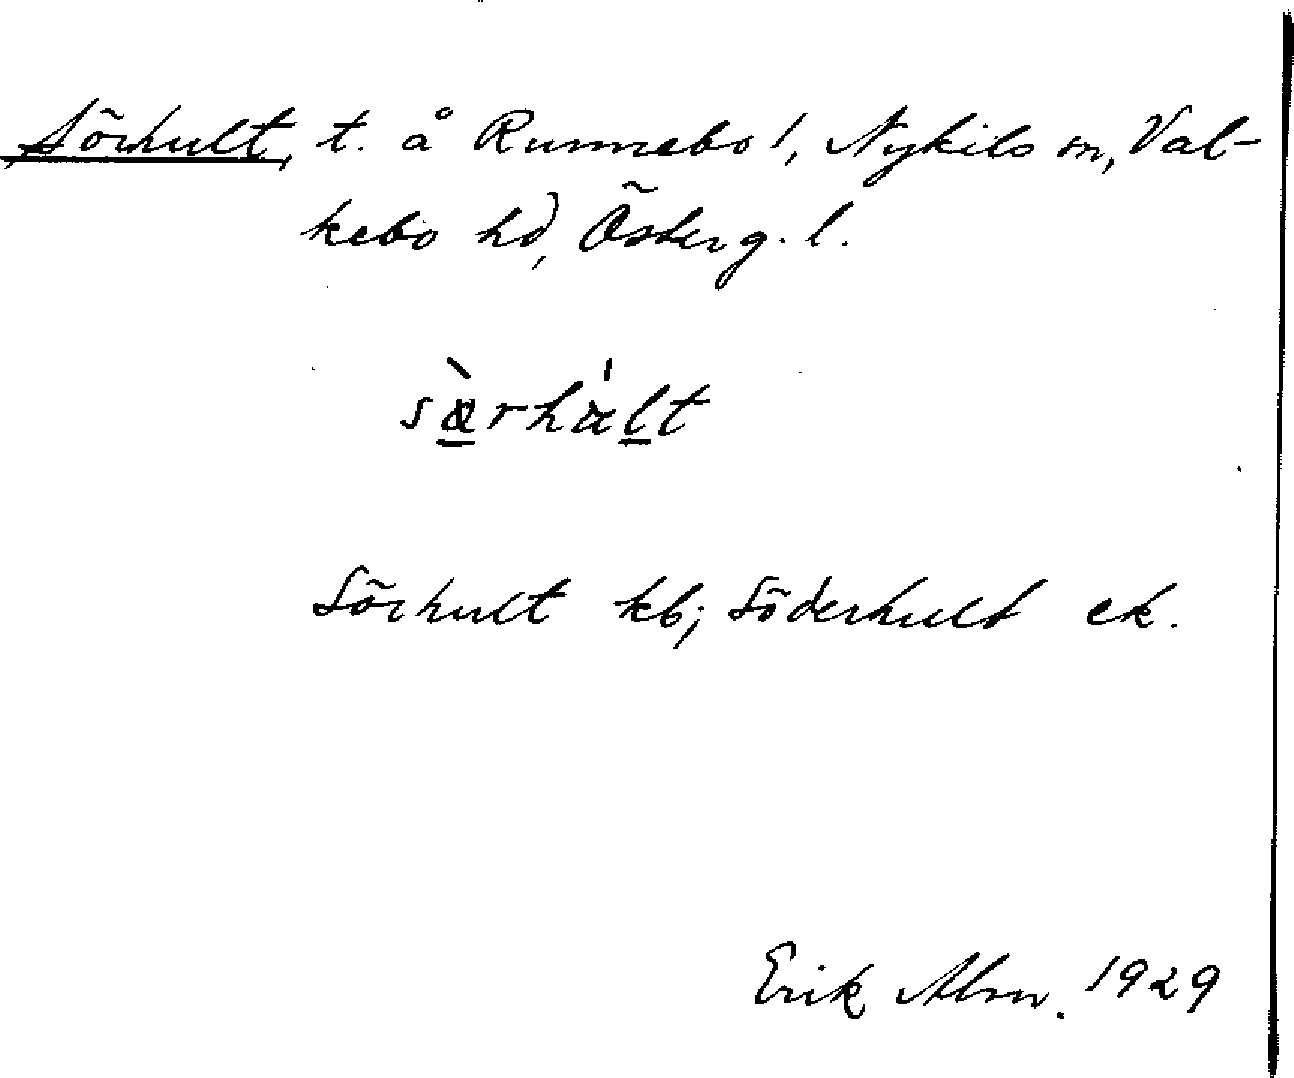 Sörhult, t. å Runnebo 1, Nykils sn, Val-
kebo hd, Österg. l.
Sörhult kb; Söderhult ek.
Erik Abrn. 1929